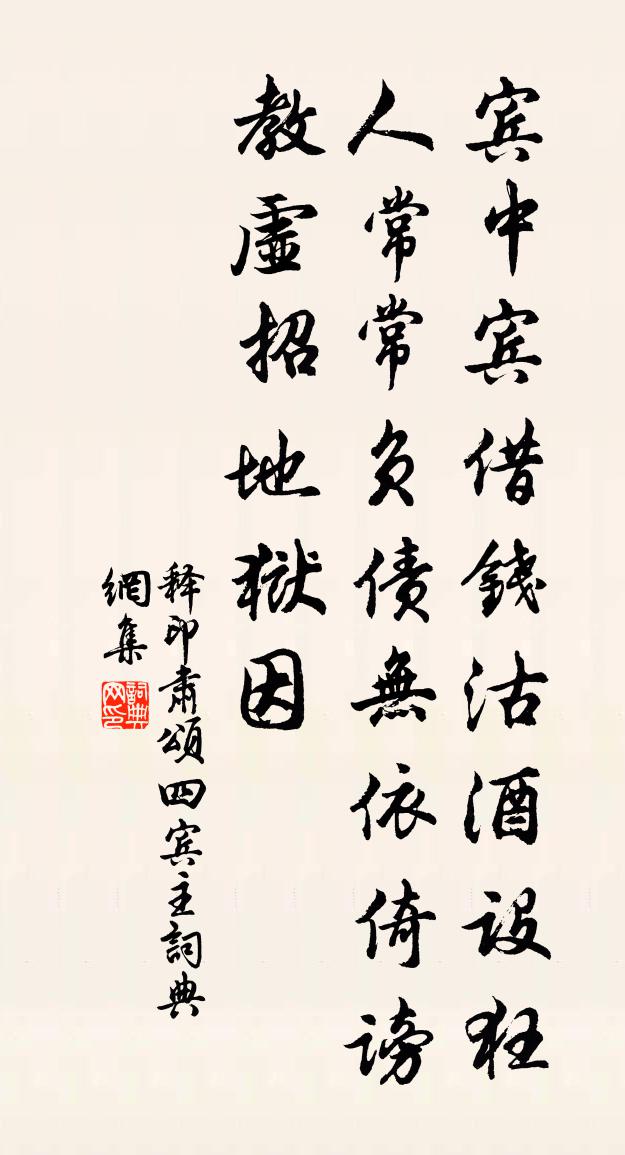 賓中賓借錢沽酒設狂
人常常負債無依倚謗
教虛招地獄因
释印肅頌四賓主詞典
網集
詞典網印